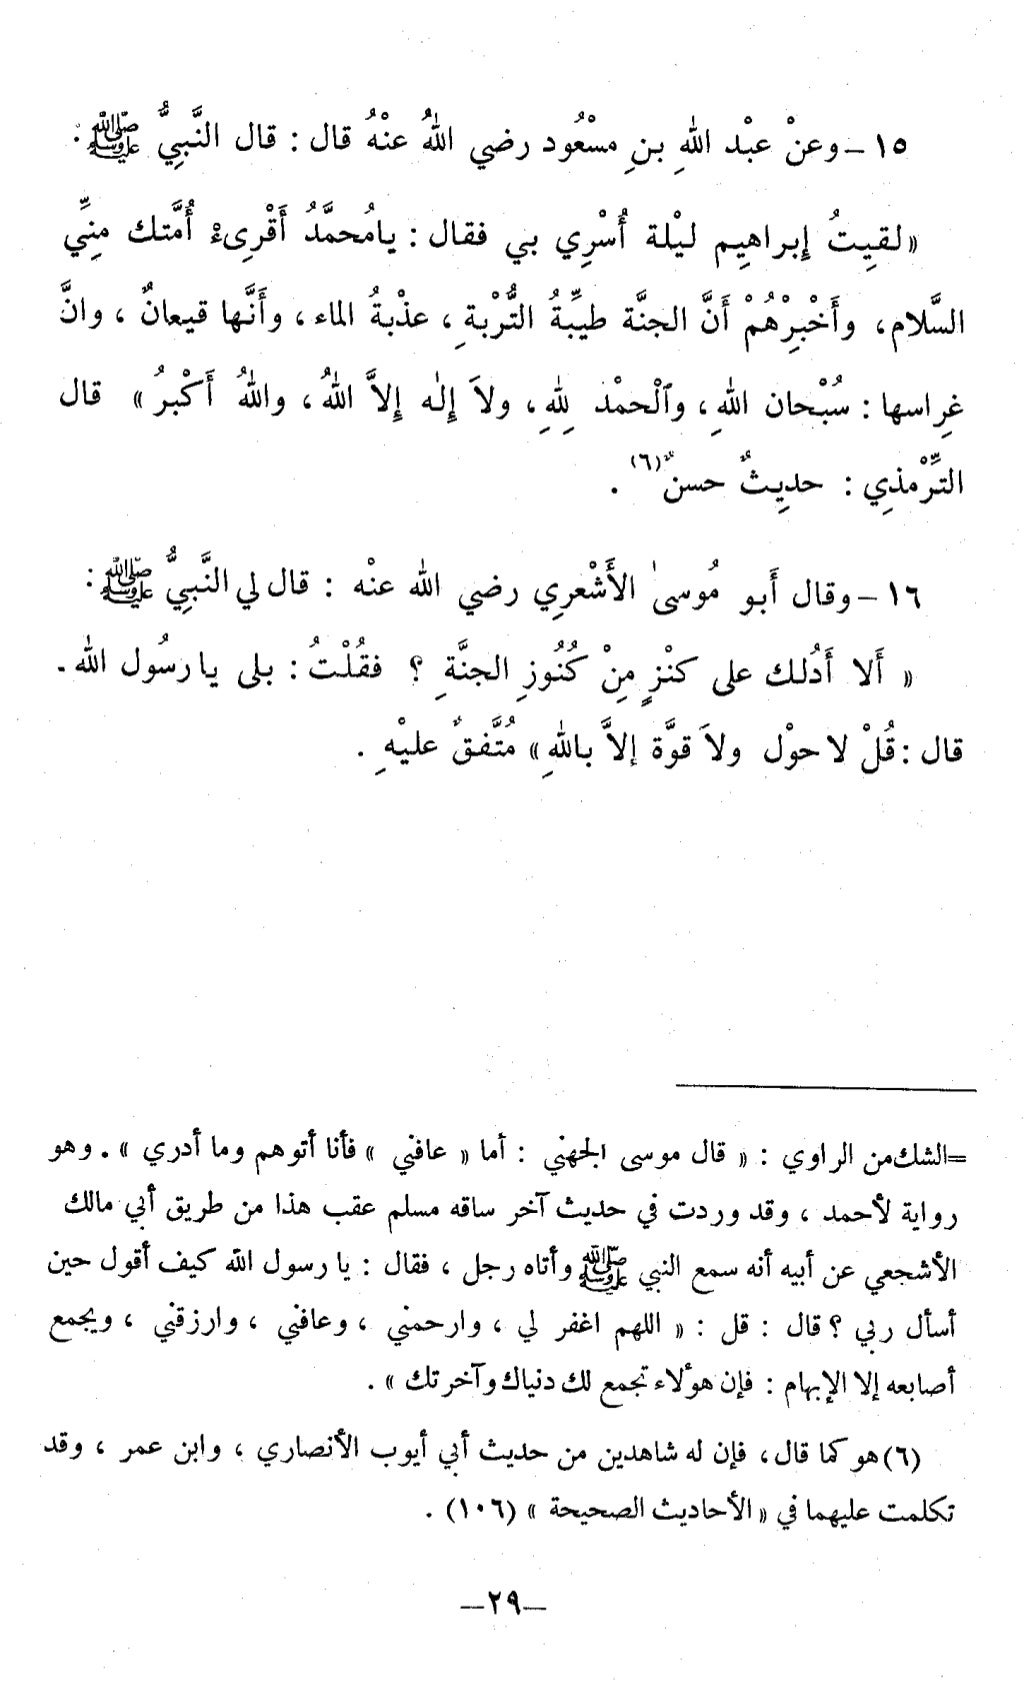 ١٥ – وعنْ عبْد اللهِ بنِ مسْعُود رضي اللهُ عنْهُ قال : قال النَّبِيُّ ﷺ :
« لقيِتُ إِبراهيِم ليْلة أُسْرِي بي فقال : يامُحمَّدُ أَقْرِىءْ أُمَّتك مِنِّي
السَّلام ، وأَخْبِرْهُمْ أَنَّ الجنَّة طيِّبةُ التُّرْبةِ ، عذْبةُ الماء ، وأَنَّها قيعانٌ ، وانَّ
غِراسها : سُبْحان اللهِ ، وٱلْحمْد لِلهِ ، ولاَ إِلٰه إِلاَّ اللهُ ، واللهُ أَكْبرُ » قال
التِّرْمذِي : حديِثٌ حسنٌ (٦) .
١٦ – وقال أَبو مُوسىٰ الأَشْعرِي رضي الله عنْه : قال لي النَّبِيُّ ﷺ :
« أَلا أَدُلك على كنْزٍ مِنْ كُنُوزِ الجنَّةِ ؟ فقُلْتُ : بلى يا رسُول الله .
قال : قُلْ لا حوْل ولاَ قوَّة إلاَّ باللهِ » مُتَّفقٌ عليْهِ .
=الشك من الراوي : « قال موسى الجهني : أما « عافني » فأنا أتوهم وما أدري » . وهو
رواية لأحمد ، وقد وردت في حديث آخر ساقه مسلم عقب هذا من طريق أبي مالك
الأشجعي عن أبيه أنه سمع النبي ﷺ وأتاه رجل ، فقال : يا رسول الله كيف أقول حين
أسأل ربي ؟ قال : قل : « اللهم اغفر لي ، وارحمني ، وعافني ، وارزقني ، ويجمع
أصابعه إلا الإبهام : فإن هؤلاء تجمع لك دنياك وآخرتك » .
(٦) هو كما قال ، فإن له شاهدين من حديث أبي أيوب الأنصاري ، وابن عمر ، وقد
تكلمت عليهما في « الأحاديث الصحيحة » (١٠٦) .
–٢٩–